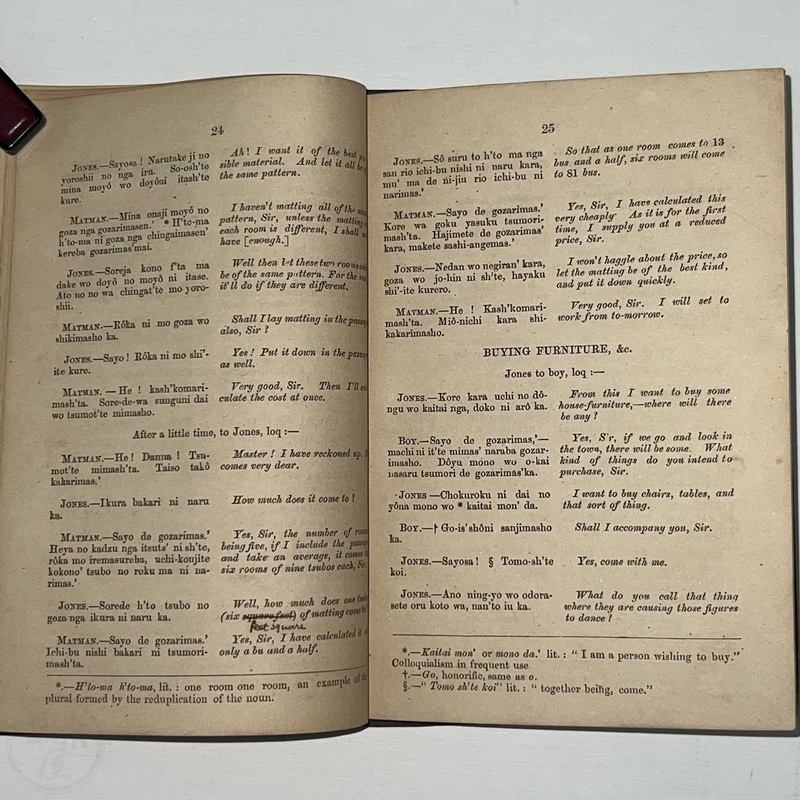 24
JONES.—Sayosa! Narutake ji no
yoroshii no nga ira. So-osh'te
mina moyô wo doyôni itash'te
kure.
Ah! I want it of the best
sible material. And let it all be
the same pattern.
MATMAN.—Mina onaji moyô no
goza nga gozarimasen.' * H'to-ma
h'to-ma ni goza nga chingaimasen'
kereba gozarimas'mai.
I haven't matting all of the
pattern, Sir, unless the matting
each room is different, I shall
have [enough.]
JONES.—Soreja kono f'ta ma
dake wo doyô no moyô ni itase.
Ato no no wa chingat'te mo yoro-
shii.
Well then let these two rooms
be of the same pattern. For the
it'll do if they are different.
MATMAN.—Rôka ni mo goza wo
shikimasho ka.
Shall I lay matting in the
also, Sir?
JONES.—Sayo! Rôka ni mo shi'-
ite kure.
Yes! Put it down in the
as well.
MATMAN.—He! kash'komari-
mash'ta. Sore-de-wa sunguni dai
wo tsumot'te mimasho.
Very good, Sir. Then I'll
culate the cost at once.
After a little time, to Jones, loq:—
MATMAN.—He! Danna! Tsu-
mot'te mimash'ta. Taiso takô
kakarimas.'
Master! I have reckoned up.
comes very dear.
JONES.—Ikura bakari ni naru
ka.
How much does it come to?
MATMAN.—Sayo de gozarimas.'
Heya no kadzu nga itsuts' ni sh'te,
rôka mo iremasureba, uchi-konjite
kokono' tsubo no roku ma ni na-
rimas.'
Yes, Sir, the number of
being five, if I include the
and take an average, it comes
six rooms of nine tsubos each, Sir.
JONES.—Sorede h'to tsubo no
goza nga ikura ni naru ka.
Well, how much does one
(six square feet) of matting come
feet square
MATMAN.—Sayo de gozarimas.'
Ichi-bu nishi bakari ni tsumori-
mash'ta.
Yes, Sir, I have calculated
only a bu and a half.
*.—H'to-ma h'to-ma, lit.: one room one room, an example of
plural formed by the reduplication of the noun.
25
JONES.—Sô suru to h'to ma nga
san rio ichi-bu nishi ni naru kara,
mu' ma de ni-jiu rio ichi-bu ni
narimas.'
So that as one room comes to 13
bus and a half, six rooms will come
to 81 bus.
MATMAN.—Sayo de gozarimas.'
Kore wa goku yasuku tsumori-
mash'ta. Hajimete de gozarimas'
kara, makete sashi-angemas.'
Yes, Sir, I have calculated this
very cheaply. As it is for the first
time, I supply you at a reduced
price, Sir.
JONES.—Nedan wo negiran' kara,
goza wo jo-hin ni sh'te, hayaku
shi'-ite kurero.
I won't haggle about the price, so
let the matting be of the best kind,
and put it down quickly.
MATMAN.—He! Kash'komari-
mash'ta. Miô-nichi kara shi-
kakarimasho.
Very good, Sir. I will set to
work from to-morrow.
BUYING FURNITURE, &c.
Jones to boy, loq:—
JONES.—Kore kara uchi no dô-
ngu wo kaitai nga, doko ni arô ka.
From this I want to buy some
house-furniture,—where will there
be any?
BOY.—Sayo de gozarimas,'—
machi ni it'te mimas' naraba gozar-
imasho. Dôyu mono wo o-kai
nasaru tsumori de gozarimas'ka.
Yes, S'r, if we go and look in
the town, there will be some. What
kind of things do you intend to
purchase, Sir.
JONES—Chokuroku ni dai no
yôna mono wo * kaitai mon' da.
I want to buy chairs, tables, and
that sort of thing.
BOY.—† Go-is'shôni sanjimasho
ka.
Shall I accompany you, Sir.
JONES.—Sayosa! § Tomo-sh'te
koi.
Yes, come with me.
JONES.—Ano ning-yo wo odora-
sete oru koto wa, nan'to iu ka.
What do you call that thing
where they are causing those figures
to dance?
*.—Kaitai mon' or mono da.' lit.: "I am a person wishing to buy."
Colloquialism in frequent use
†.—Go, honorific, same as o.
§.—"Tomo sh'te koi" lit.: "together being, come."